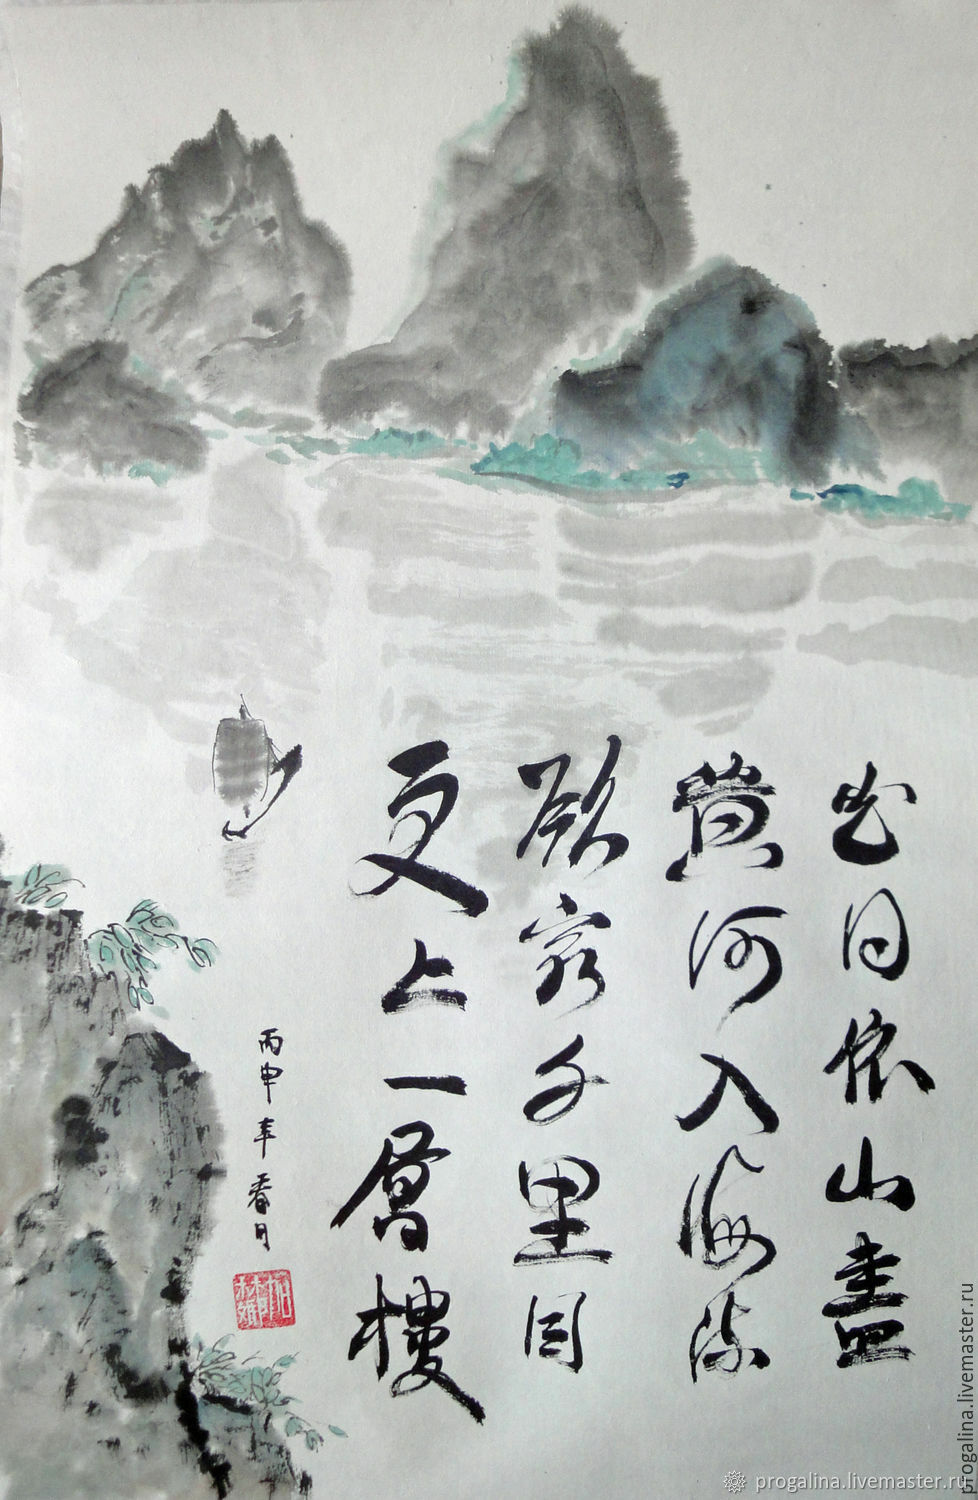 白日依山盡
黄河入海流
欲窮千里目
更上一層樓
丙申年春月
progalina.livemaster.ru
progalina.livemaster.ru